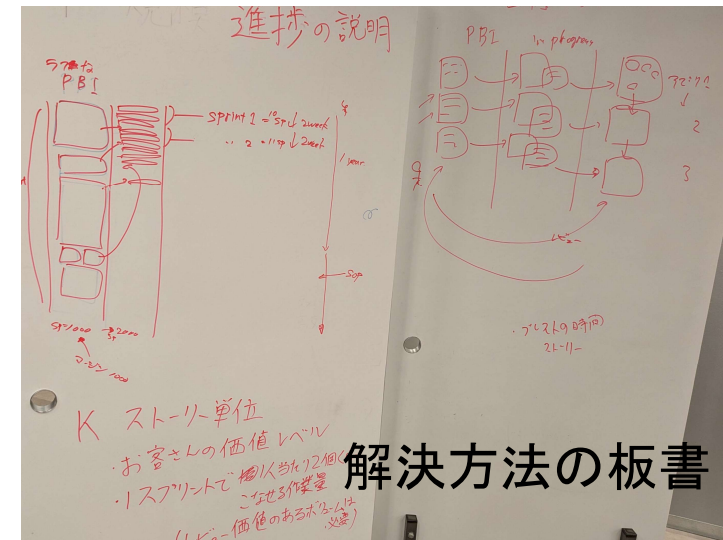 進捗の説明
ラフな
PBI
Sprint 1 = 10sp ↓ 2week
〃 2 = 11sp ↓ 2week
1 year
SOP
SP=1000 → 2000
SP
マージン 1000
PBI
in program
2
3
レビュー
ストーリー
K ストーリー単位
・お客さんの価値レベル
・1スプリントで 1人当たり2個くらい
こなせる作業量
価値のあるボリュームは
必要)
解決方法の板書